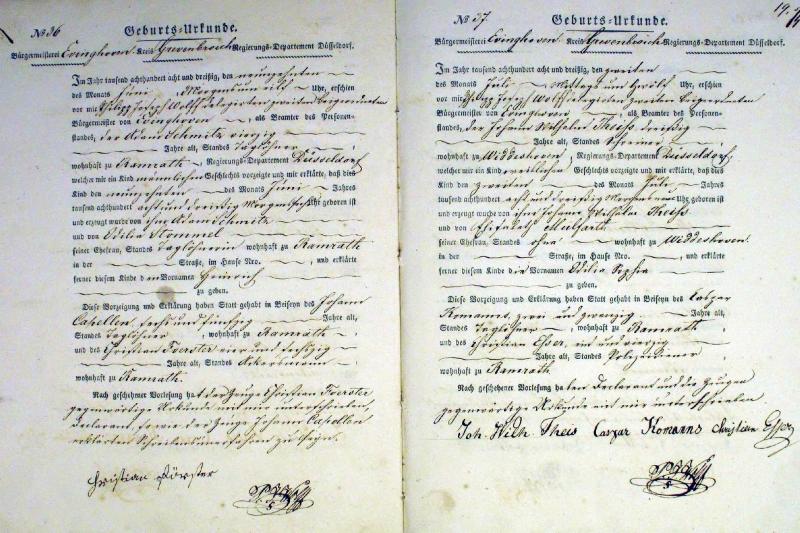 № 36
Geburts-Urkunde.
Bürgermeisterei Evinghoven Kreis Grevenbroich Regierungs-Departement Düsseldorf.
Im Jahr tausend achthundert acht und dreißig, den neunzehnten
des Monats Juni, Morgens um elf Uhr, erschien
vor mir Philipp Joseph Wolff delegirten zweiten Beigeordneten
Bürgermeister von Evinghoven, als Beamter des Personen-
standes, der Adam Schmitz vierzig
Jahre alt, Standes Taglöhner
wohnhaft zu Ramrath, Regierungs-Departement Düsseldorf,
welcher mir ein Kind männlichen Geschlechts vorzeigte und mir erklärte, daß dies
Kind den neunzehnten des Monats Juni Jahres
tausend achthundert acht und dreißig Morgens Uhr geboren ist
und erzeugt wurde von ihm Adam Schmitz
und von Odilia Stommel
seiner Ehefrau, Standes Taglöhnerin wohnhaft zu Ramrath
in der Straße, im Hause Nro. , und erklärte
ferner diesem Kinde den Vornamen Heinrich
zu geben.
Diese Vorzeigung und Erklärung haben Statt gehabt in Beiseyn des Johann
Capellen, sechs und fünfzig Jahre alt,
Standes Taglöhner, wohnhaft zu Ramrath,
und des Christian Foerster vier und sechszig
Jahre alt, Standes Ackersmann
wohnhaft zu Ramrath.
Nach geschehener Vorlesung hat der Zeuge Christian Foerster
gegenwärtige Urkunde mit mir unterschrieben,
Declarant, sowie der Zeuge Johann Capellen
erklärten Schreibensunerfahren zu seyn.
Christian Förster
19.
№ 37.
Geburts-Urkunde.
Bürgermeisterei Evinghoven Kreis Grevenbroich Regierungs-Departement Düsseldorf.
Im Jahr tausend achthundert acht und dreißig, den zweiten
des Monats Juli, Mittags um zwölf Uhr, erschien
vor mir Philipp Joseph Wolff delegirten zweiten Beigeordneten
Bürgermeister von Evinghoven, als Beamter des Personen-
standes, der Johann Wilhelm Theiss dreißig
Jahre alt, Standes Schreiner
wohnhaft zu Widdeshoven, Regierungs-Departement Düsseldorf,
welcher mir ein Kind weiblichen Geschlechts vorzeigte und mir erklärte, daß dies
Kind den zweiten des Monats Juli Jahres
tausend achthundert acht und dreißig Morgens Uhr geboren ist
und erzeugt wurde von ihm Johann Wilhelm Theiss
und von
seiner Ehefrau, Standes ohne wohnhaft zu Widdeshoven
in der Straße, im Hause Nro. , und erklärte
ferner diesem Kinde die Vornamen Odilia Sophia
zu geben.
Diese Vorzeigung und Erklärung haben Statt gehabt in Beiseyn des Caspar
Komanns, zwei und zwanzig Jahre alt,
Standes Taglöhner, wohnhaft zu Ramrath,
und des Christian Esser, ein und vierzig
Jahre alt, Standes Polizeidiener
wohnhaft zu Ramrath
Nach geschehener Vorlesung haben Declarant und die Zeugen
gegenwärtige Urkunde mit mir unterschrieben
Joh. Wilh. Theis Caspar Komanns Christian Esser